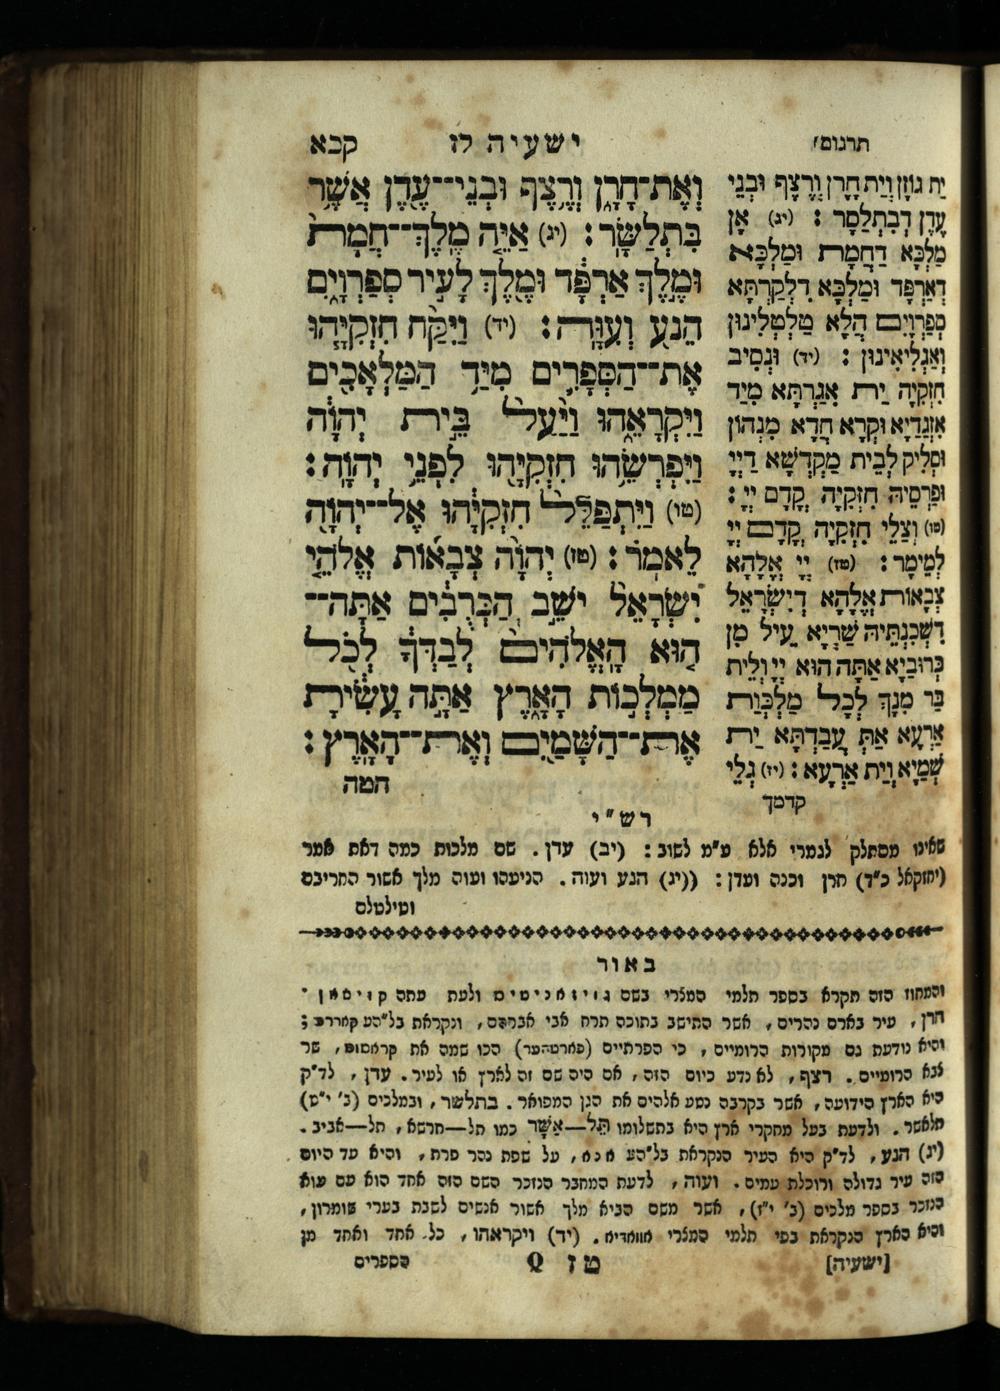 ישעיה לז קכא
וְאֶת־חָרָן וְרֶצֶף וּבְנֵי־עֶדֶן אֲשֶׁר
בִּתְלַשָּׂר: (יג) אַיֵּה מֶלֶךְ־חֲמָת
וּמֶלֶךְ אַרְפָּד וּמֶלֶךְ לָעִיר סְפַרְוָיִם
הֵנַע וְעִוָּה: (יד) וַיִּקַּח חִזְקִיָּהוּ
אֶת־הַסְּפָרִים מִיַּד הַמַּלְאָכִים
וַיִּקְרָאֵהוּ וַיַּעַל בֵּית יְהוָה
וַיִּפְרְשֵׂהוּ חִזְקִיָּהוּ לִפְנֵי יְהוָה:
(טו) וַיִּתְפַּלֵּל חִזְקִיָּהוּ אֶל־יְהוָה
לֵאמֹר: (טז) יְהוָה צְבָאוֹת אֱלֹהֵי
יִשְׂרָאֵל יֹשֵׁב הַכְּרֻבִים אַתָּה־
הוּא הָאֱלֹהִים לְבַדְּךָ לְכֹל
מַמְלְכוֹת הָאָרֶץ אַתָּה עָשִׂיתָ
אֶת־הַשָּׁמַיִם וְאֶת־הָאָרֶץ:
הטה
תרגום
יַת גּוֹזָן וְיַת חָרָן וְרֶצֶף וּבְנֵי
עֶדֶן דְבִתְלַסָר: (יג) אָן
מַלְכָּא דַחֲמָת וּמַלְכָּא
דְאַרְפָּד וּמַלְכָּא דִלְקַרְתָּא
סְפַרְוָיִם הֲלָא טַלְטְלִינוּן
וְאַגְלִיאִינוּן: (יד) וּנְסִיב
חִזְקִיָה יַת אִגַרְתָּא מִיַד
אִזְגַדַיָא וּקְרָא חֲדָא מִנְהוֹן
וּסְלִיק לְבֵית מַקְדְשָׁא דַיְיָ
וּפַרְסֵיהּ חִזְקִיָה קֳדָם יְיָ:
(טו) וְצַלֵי חִזְקִיָה קֳדָם יְיָ
לְמֵימָר: (טז) יְיָ אֱלָהָא
צְבָאוֹת אֱלָהָא דְיִשְׂרָאֵל
דִשְׁכִנְתֵּיהּ שַׁרְיָא עֵיל מִן
כְּרוּבַיָא אַתָּה הוּא יְיָ וְלֵית
בַּר מִנָךְ לְכָל מַלְכְּוַת
אַרְעָא אַתְּ עֲבַדְתָּא יַת
שְׁמַיָא וְיַת אַרְעָא: (יז) גְלֵי
קדמך
רש"י
שאינו מסתלק לגמרי אלא ע"מ לשוב: (יב) עדן. שם מלכות כמה דאת אמר
(יחזקאל כ"ד) חרן וכנה ועדן: ((יג) הנע ועוה. הניעהו ועוה מלך אשור החריבם
וטילטלם
באור
והמחוז הזה תקרא בספר תלמי המצרי בשם גויזאניטים ולעת עתה קויסאן.
חרן, עיר בארם נהרים, אשר התישב בתוכה תרח אבי אברהם, ונקראת בל"הע קאררע;
והיא נודעת גם מקורות הרומיים, כי הפרתיים (פארטהער) הכו שמה את קראסוס, שר
צבא הרומיים. רצף, לא נדע כיום הזה, אם היה שם זה לארץ או לעיר. עדן, לד"ק
היא הארץ הידועה, אשר בקרבה נטע אלהים את הגן המפואר. בתלשר, ובמלכים (ב' י"ט)
תלאשר. ולדעת בעל מחקרי ארץ היא בתשלומו תֵּל—אַשָּׁר כמו תל—חרשא, תל—אביב.
(יג) הנע, לד"ק היא העיר הנקראת בל"הע אנא, על שפת נהר פרת, והיא עד היום
הזה עיר גדולה ורוכלת עמים. ועוה, לדעת המחבר הנזכר השם הזה אחד הוא עם עוא
הנזכר בספר מלכים (ב' י"ז), אשר משם הביא מלך אשור אנשים לשבת בערי שומרון,
והיא הארץ הנקראת בפי תלמי המצרי אוואדיא. (יד) ויקראהו, כל אחד ואחד מן
[ישעיה] טז Q הספרים